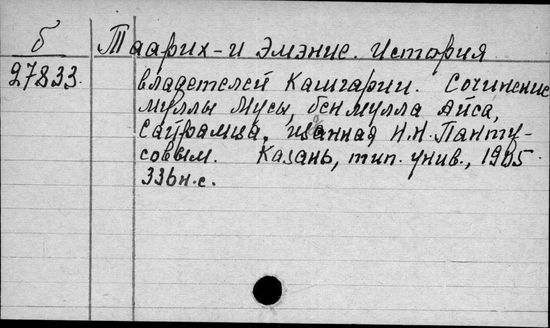 б
27833.
Таарих-и эмэние. История
владетелей Кашгарии. Сочинение
муллы Мусы, бен мулла Айса,
сайрамца, изданная Н.Н. Панту-
совым. Казань, тип. унив., 1905.
336н.с.